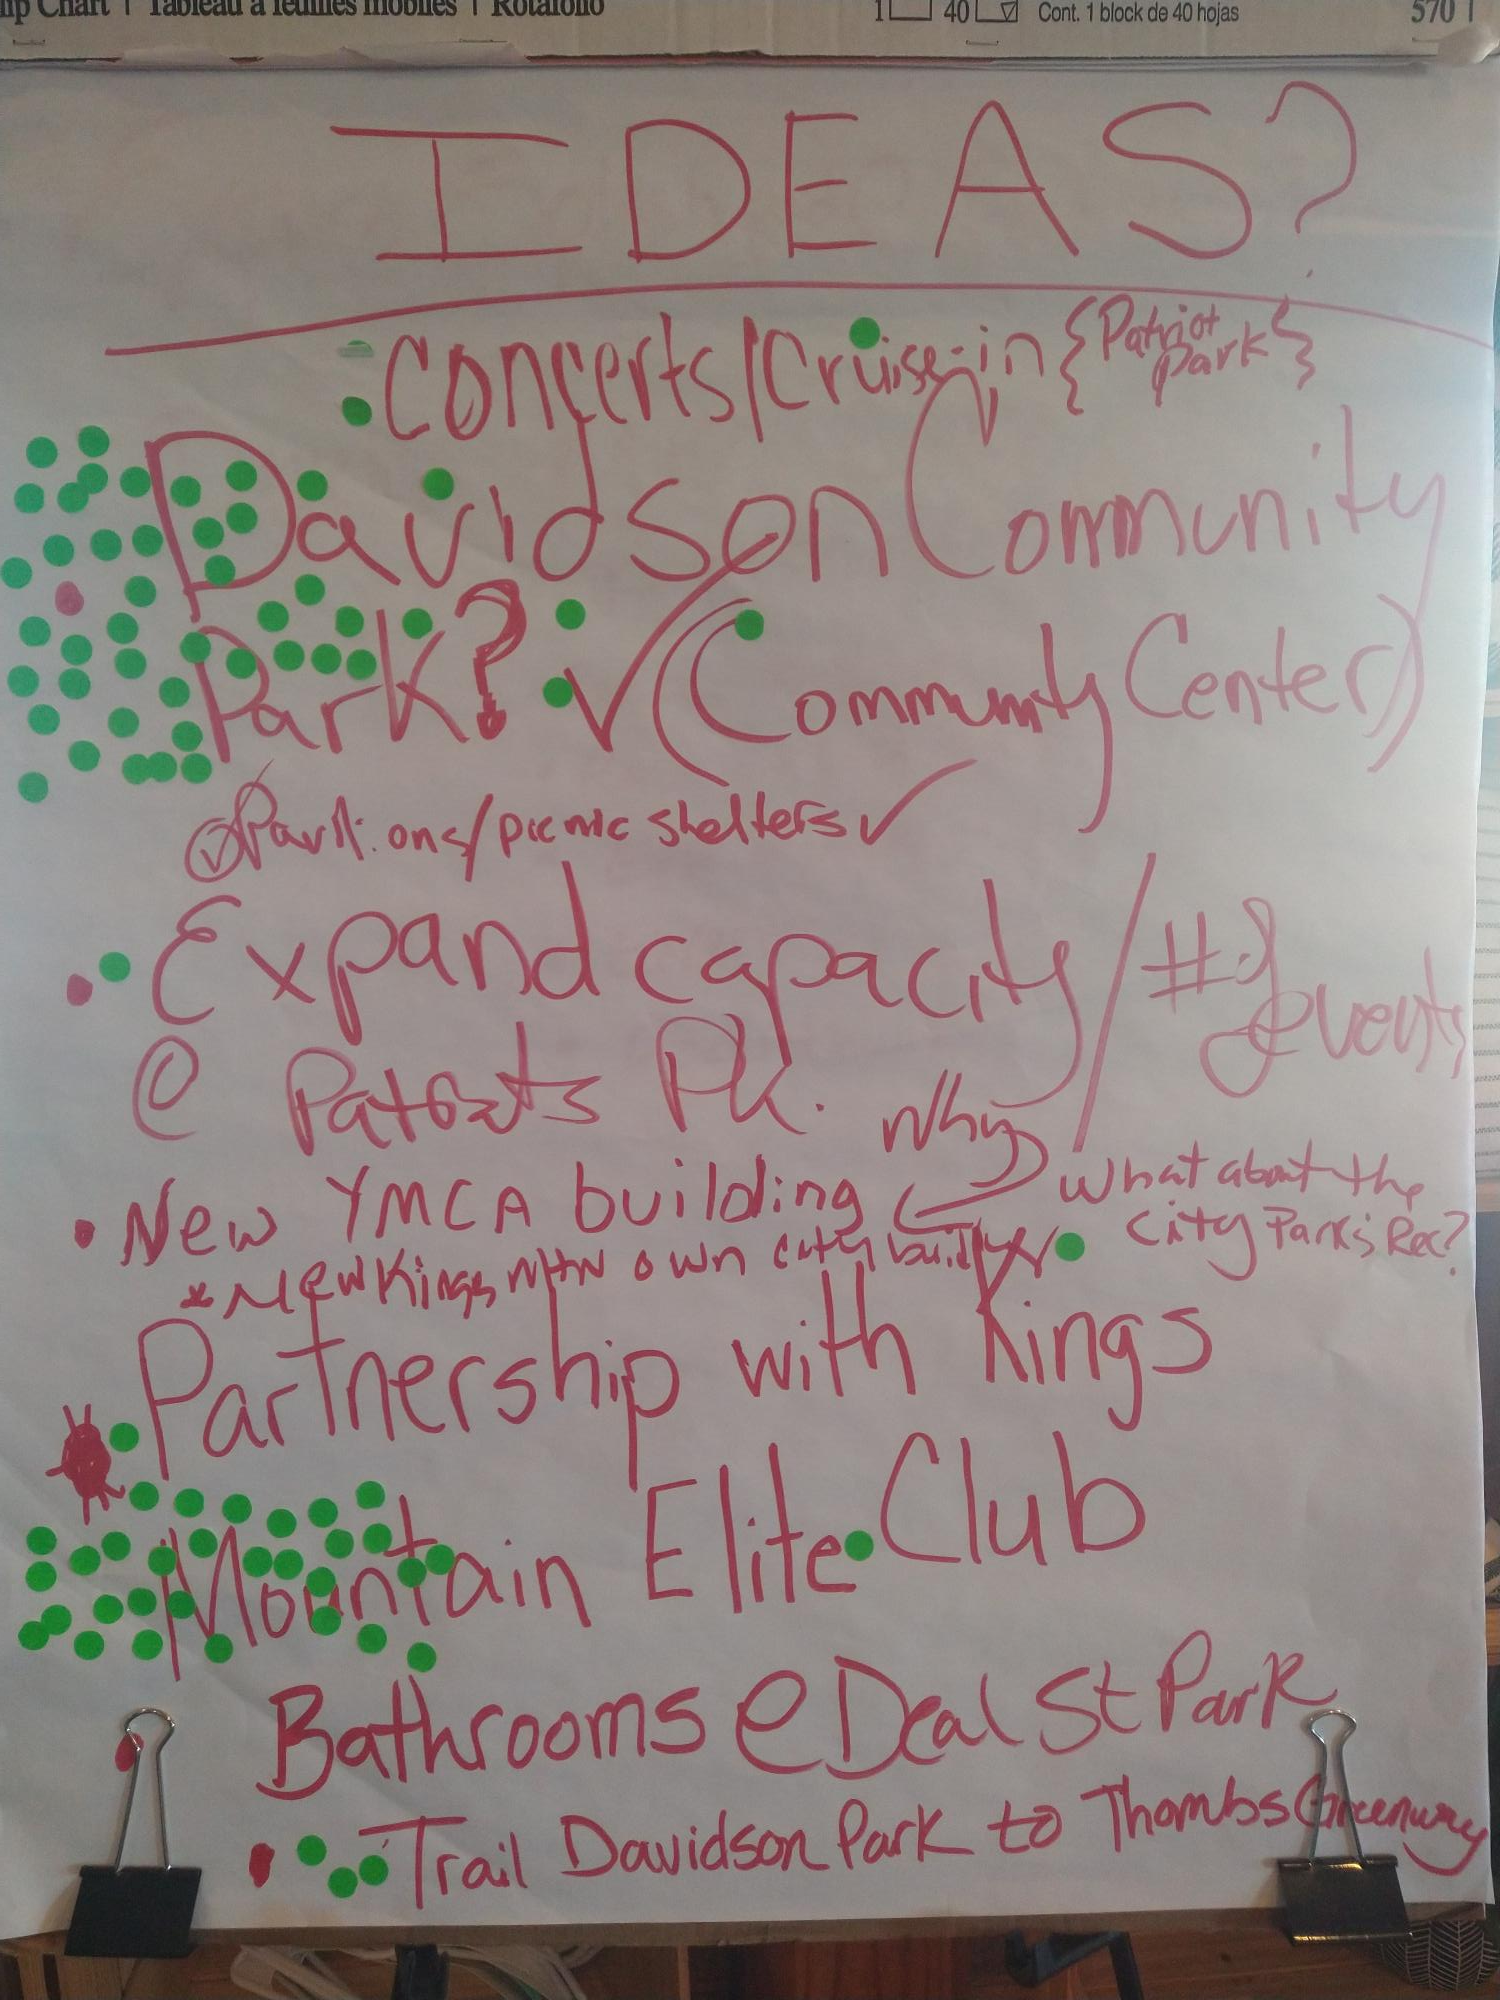 Chart | Tableau à feuilles mobiles | Rotafolio
1 40 Cont. 1 block de 40 hojas 570
IDEAS?
Concerts/Cruise-in {Patriot Park}
Davidson Community
Park? (Community Center)
Pavilions/picnic shelters
Expand capacity/# of events
@ Patriots Pk.
Why
New YMCA building
What about the
City Parks Rec?
* New Kings Mtn own city building
Partnership with Kings
Mountain Elite Club
Bathrooms @ Deal St Park
Trail Davidson Park to Thombs Greenway